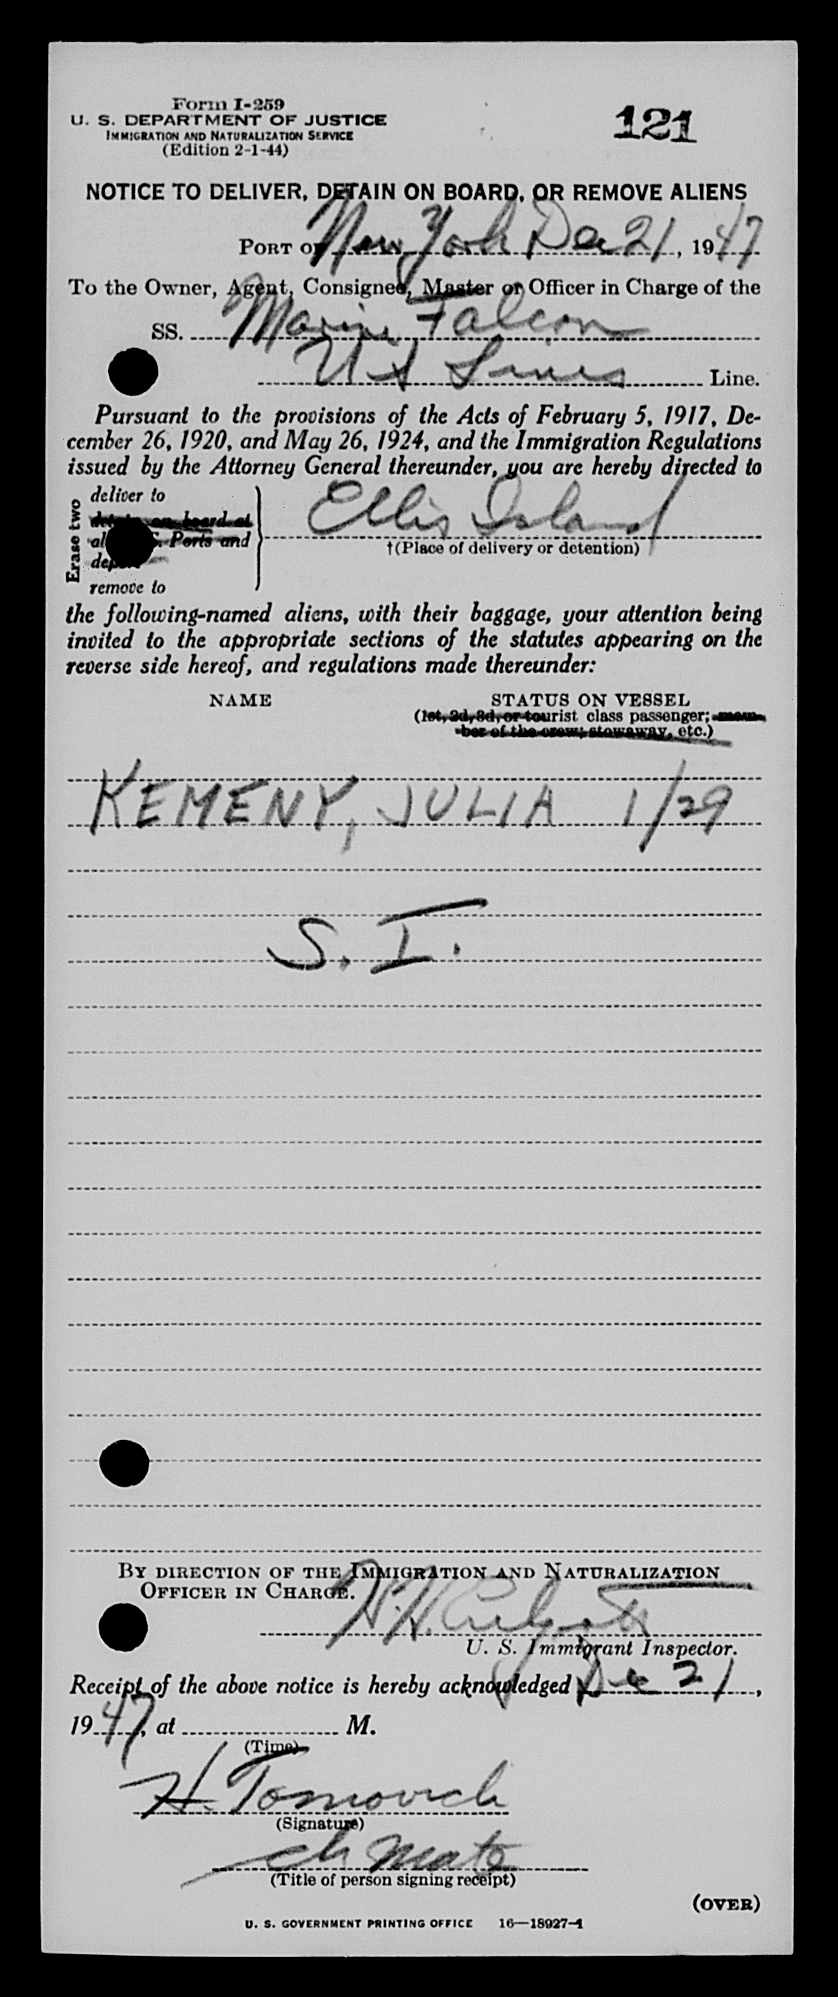 Form I-259
U. S. DEPARTMENT OF JUSTICE
IMMIGRATION AND NATURALIZATION SERVICE
(Edition 2-1-44)
121
NOTICE TO DELIVER, DETAIN ON BOARD, OR REMOVE ALIENS
PORT OF New York Dec 21, 1947
To the Owner, Agent, Consignee, Master or Officer in Charge of the
SS. Marine Falcon
U S Lines Line.
Pursuant to the provisions of the Acts of February 5, 1917, De-
cember 26, 1920, and May 26, 1924, and the Immigration Regulations
issued by the Attorney General thereunder, you are hereby directed to
Erase two
deliver to
detain on board at
al S. Ports and
depor
remove to
Ellis Island
†(Place of delivery or detention)
the following-named aliens, with their baggage, your attention being
invited to the appropriate sections of the statutes appearing on the
reverse side hereof, and regulations made thereunder:
NAME STATUS ON VESSEL
(1st, 2d, 3d, or tourist class passenger; mem-
ber of the crew; stowaway, etc.)
KEMENY, JULIA 1/29
S. I.
BY DIRECTION OF THE IMMIGRATION AND NATURALIZATION
OFFICER IN CHARGE.
H. H.
U. S. Immigrant Inspector.
Receipt of the above notice is hereby acknowledged Dec 21,
1947, at M.
(Time)
H. Tomovich
(Signature)
ch mate
(Title of person signing receipt)
(OVER)
U. S. GOVERNMENT PRINTING OFFICE 16—18927-1